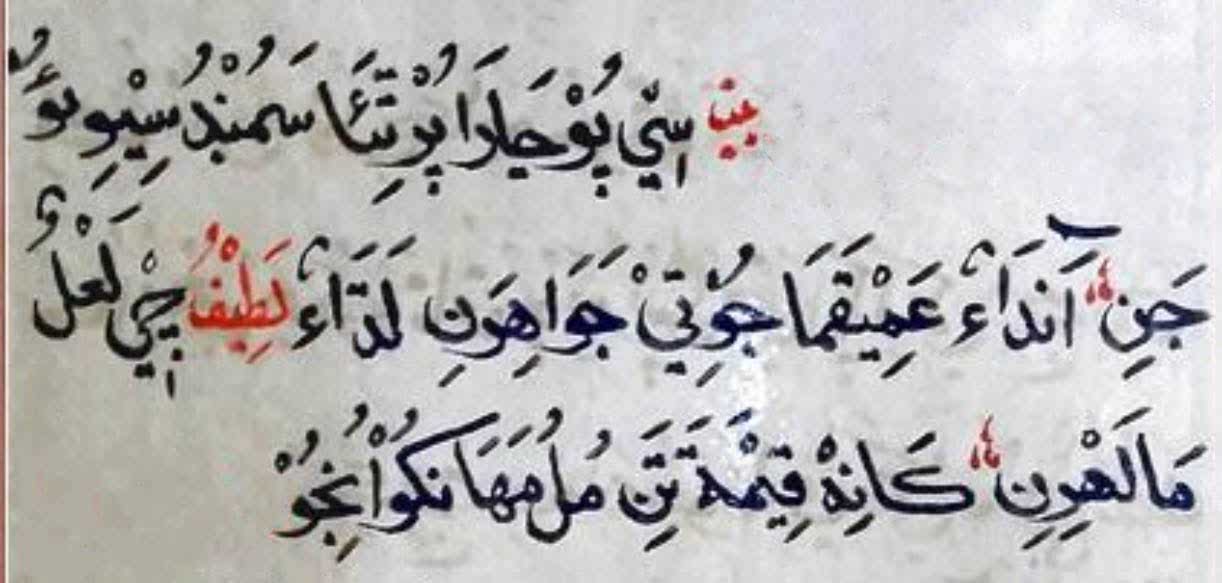 بيت سِيّ پُوْجَارَا پُرْتِئَا سَمُنْدُ سِيْوِيوُ
جَنِ آنْدَاءُ عَمِيْقَمَا جُوْتِيْ جَوَاهِرَنِ لَدَّاءُ لَطِيْفُ چِيْ لَعْلُ
مَا لَهْرِنِ كَانِهْ قِيْمَةَ تَنِ مُلُ مُهَانكُوْ اُنِجُوْ